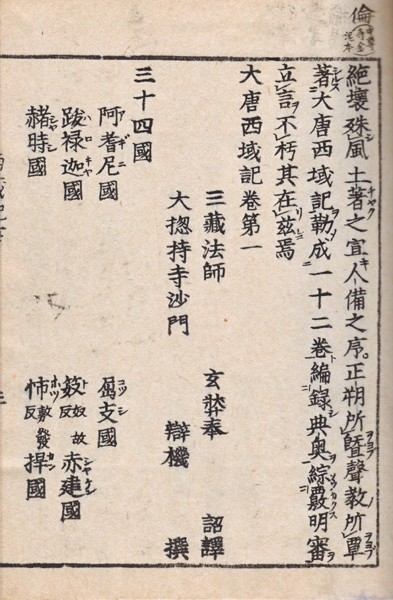 倫 中尊寺金泥本
絶壤殊風土著之宜人備之序。正朔所曁聲教所覃
著大唐西域記勒成一十二巻編録典奥綜覈明審
立言不朽其在玆焉
大唐西域記巻第一
三藏法師 玄奘奉 詔譯
大揔持寺沙門 辯機 撰
三十四國
阿耆尼國 屈支國
跋禄迦國 笯奴故反赤建國
赭時國 㤄敷發反捍國